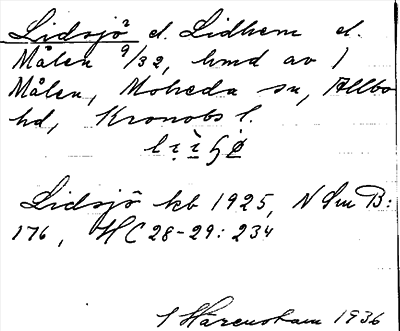 Lidsjö el. Lidhem el.
Målen 9/32, hmd av 1
Målen, Moheda sn, Allbo
hd, Kronobs l.
Lidsjö kb 1925, N Sm B:
176, HC 28-29: 234
1936